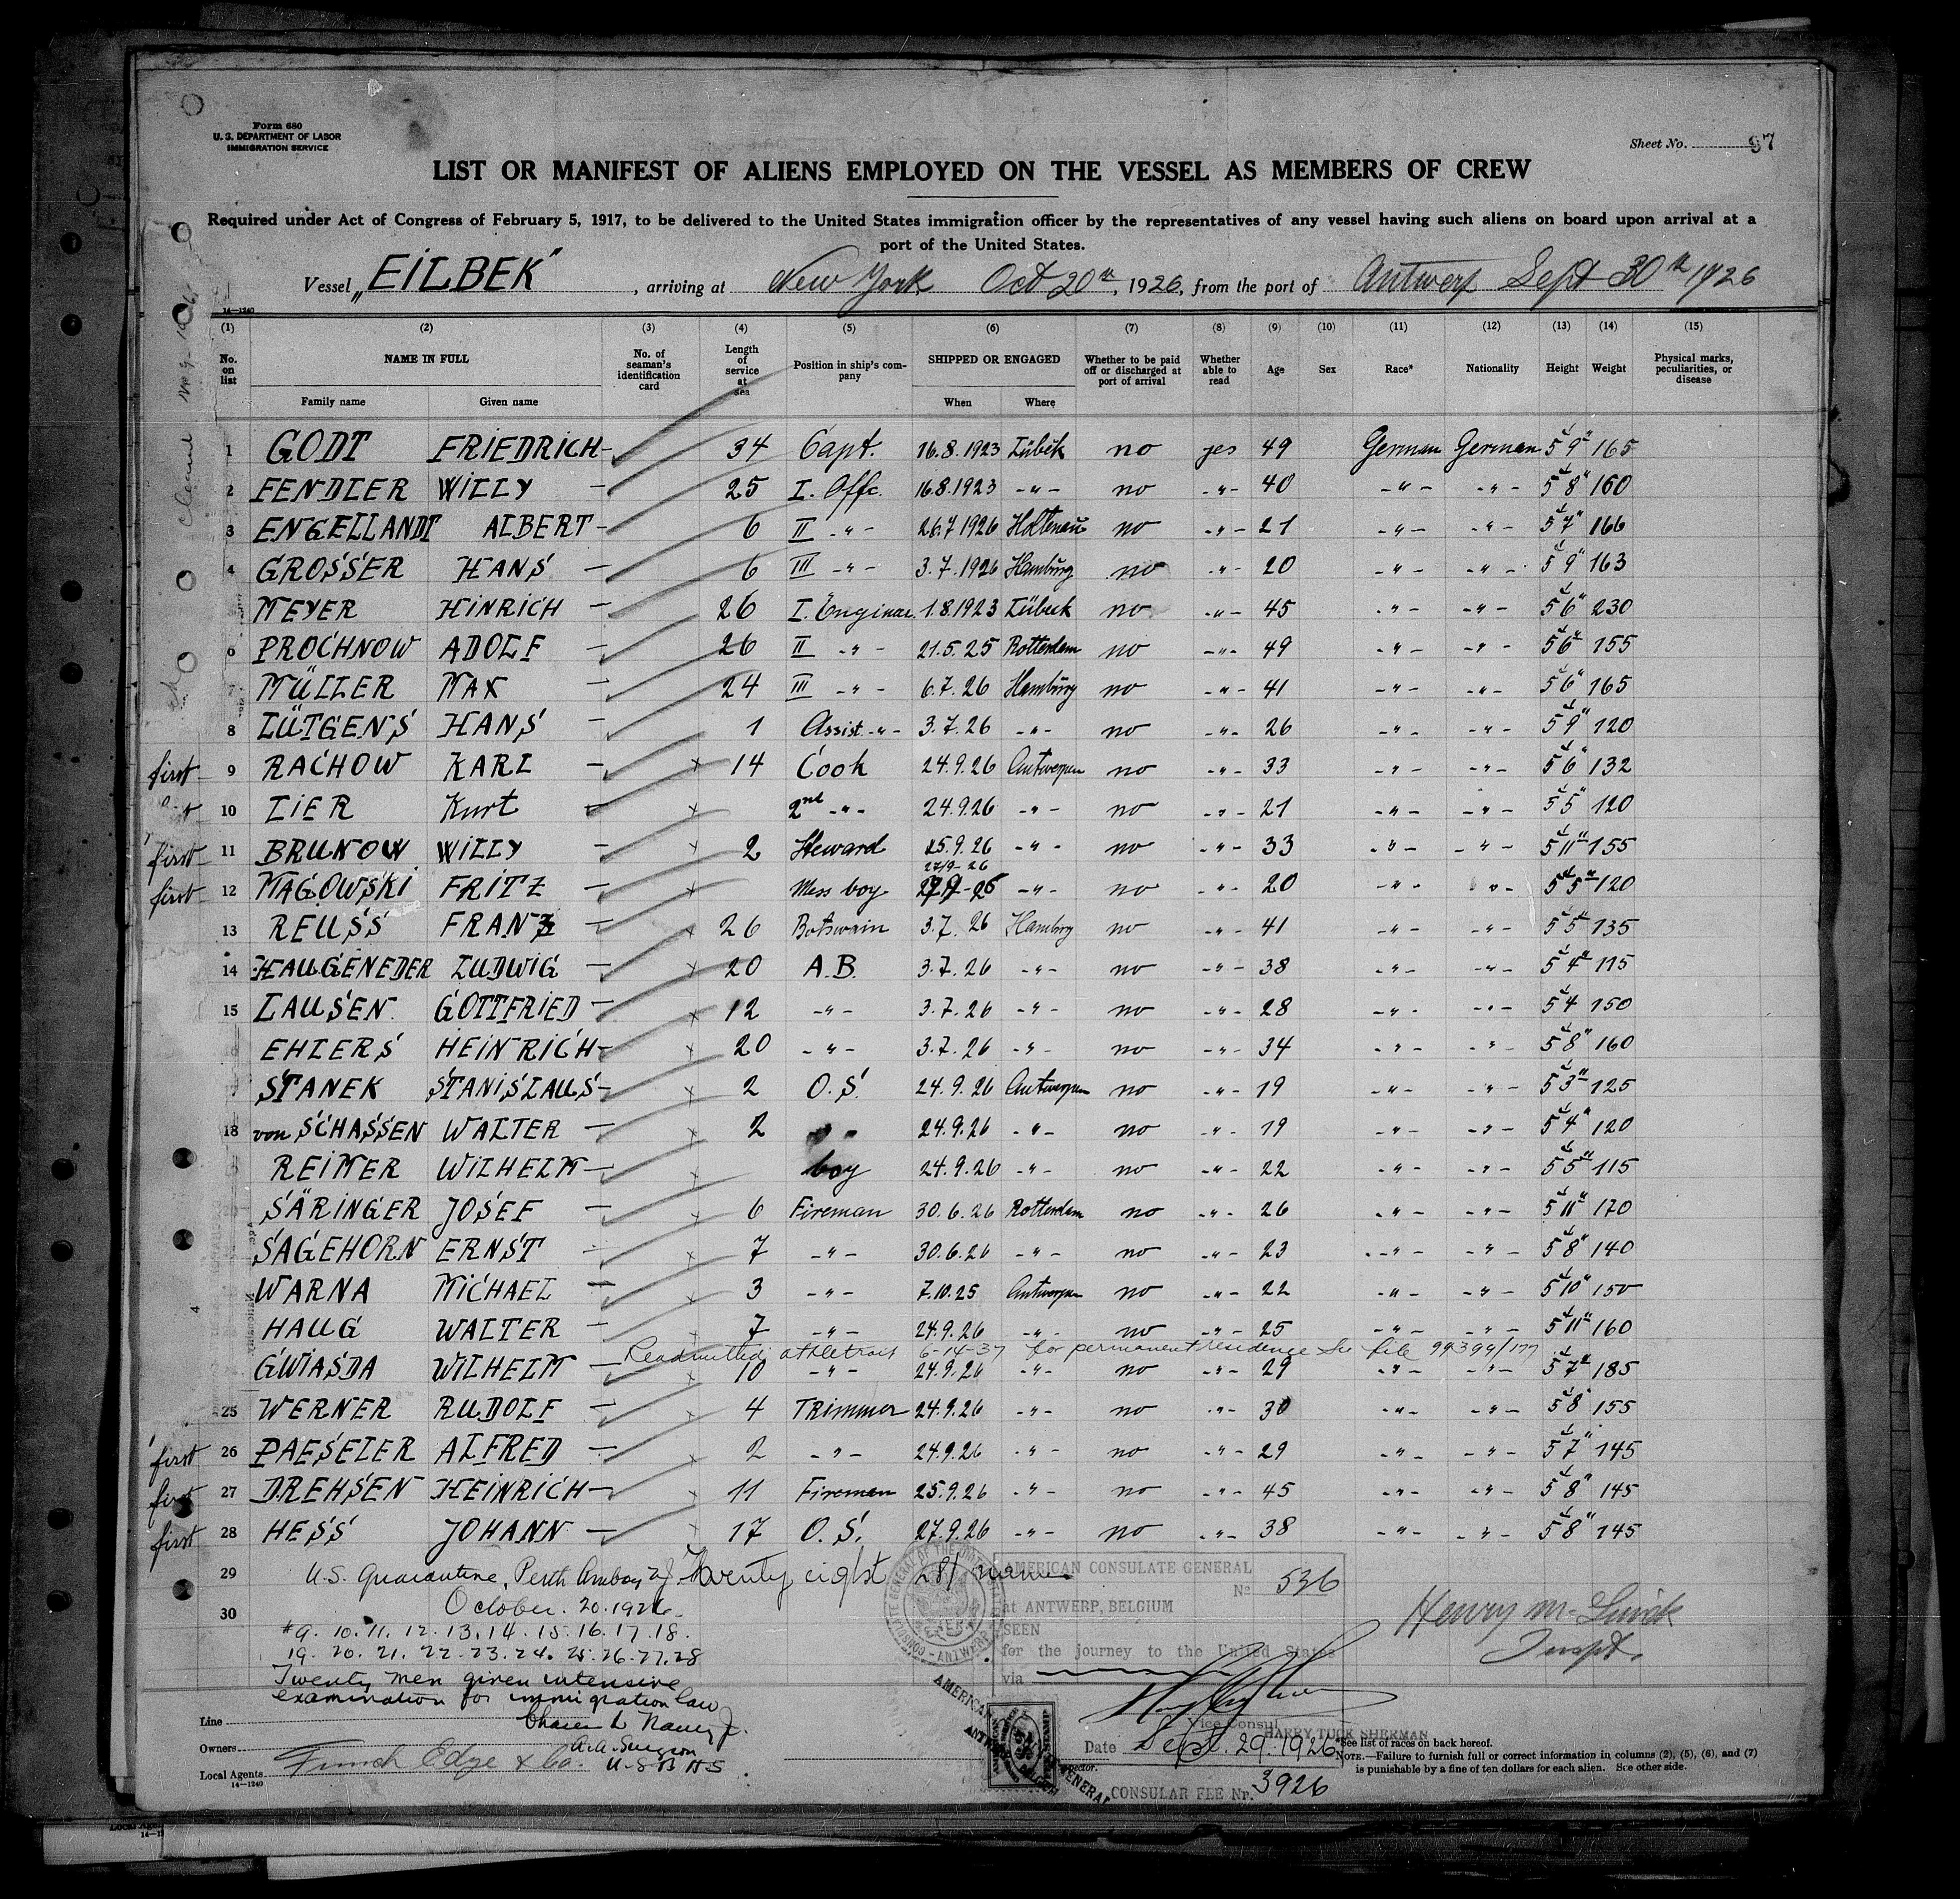 Form 680
U. S. DEPARTMENT OF LABOR
IMMIGRATION SERVICE
Sheet No. 97
LIST OR MANIFEST OF ALIENS EMPLOYED ON THE VESSEL AS MEMBERS OF CREW
Required under Act of Congress of February 5, 1917, to be delivered to the United States immigration officer by the representatives of any vessel having such aliens on board upon arrival at a
port of the United States.
Vessel „EILBEK", arriving at New York Oct 20th, 1926, from the port of Antwerp Sept 30th 1926
14—1240
(1) (2) (3) (4) (5) (6) (7) (8) (9) (10) (11) (12) (13) (14) (15)
No. on list NAME IN FULL Family name Given name No. of seaman's identification card Length of service at sea Position in ship's company SHIPPED OR ENGAGED When Where Whether to be paid off or discharged at port of arrival Whether able to read Age Sex Race* Nationality Height Weight Physical marks, peculiarities, or disease
1 GODT FRIEDRICH 34 Capt. 16.8.1923 Lübek no yes 49 German German 5' 9" 165
2 FENDLER WILLY 25 I. Offc. 16.8.1923 -"- no -"- 40 -"- -"- 5' 8" 160
3 ENGELLANDT ALBERT 6 II -"- 26.7.1926 Holtenau no -"- 21 -"- -"- 5' 7" 166
4 GROSSER HANS 6 III -"- 3.7.1926 Hamburg no -"- 20 -"- -"- 5' 9" 163
MEYER HINRICH 26 I. Enginee. 1.8.1923 Lübeck no -"- 45 -"- -"- 5' 6" 230
6 PROCHNOW ADOLF 26 II -"- 21.5.25 Rotterdam no -"- 49 -"- -"- 5' 6" 155
7 MÜLLER MAX 24 III -"- 6.7.26 Hamburg no -"- 41 -"- -"- 5' 6" 165
8 LÜTGENS HANS 1 Assist. -"- 3.7.26 -"- no -"- 26 -"- -"- 5' 9" 120
first 9 RACHOW KARL x 14 Cook 24.9.26 Antwerpen no -"- 33 -"- -"- 5' 6" 132
10 LIER Kurt x 2nd -"- 24.9.26 -"- no -"- 21 -"- -"- 5' 5" 120
first 11 BRUNOW WILLY x 2 Steward 25.9.26 -"- no -"- 33 -"- -"- 5' 11" 155
27/9-26
first 12 MAGOWSKI FRITZ x Mess boy 27.9-26 -"- no -"- 20 -"- -"- 5' 5" 120
13 REUSS FRANZ x 26 Botswain 3.7.26 Hamburg no -"- 41 -"- -"- 5' 5" 135
14 HAUGENEDER LUDWIG x 20 A.B. 3.7.26 -"- no -"- 38 -"- -"- 5' 4" 115
15 LAUSEN GOTTFRIED x 12 -"- 3.7.26 -"- no -"- 28 -"- -"- 5' 4 150
EHLERS HEINRICH x 20 -"- 3.7.26 -"- no -"- 34 -"- -"- 5' 8" 160
17 STANEK STANISLAUS x 2 O.S. 24.9.26 Antwerpen no -"- 19 -"- -"- 5' 3" 125
18 von SCHASSEN WALTER x 2 24.9.26 -"- no -"- 19 -"- -"- 5' 4" 120
REIMER WILHELM x boy 24.9.26 -"- no -"- 22 -"- -"- 5' 5" 115
SÄRINGER JOSEF x 6 Fireman 30.6.26 Rotterdam no -"- 26 -"- -"- 5' 11" 170
SAGEHORN ERNST x 7 -"- 30.6.26 -"- no -"- 23 -"- -"- 5' 8" 140
WARNA MICHAEL x 3 -"- 7.10.25 Antwerpen no -"- 22 -"- -"- 5' 10" 150
HAUG WALTER x 7 -"- 24.9.26 -"- no -"- 25 -"- -"- 5' 11" 160
Readmitted at Detroit 6-14-37 for permanent residence See file 99399/177
GWIASDA WILHELM x 10 -"- 24.9.26 -"- no -"- 29 -"- -"- 5' 7" 185
25 WERNER RUDOLF x 4 TRimmer 24.9.26 -"- no -"- 30 -"- -"- 5' 8 155
first 26 PAESELER ALFRED x 2 -"- 24.9.26 -"- no -"- 29 -"- -"- 5' 7" 145
first 27 DREHSEN HEINRICH x 11 Fireman 25.9.26 -"- no -"- 45 -"- -"- 5' 8" 145
first 28 HESS JOHANN x 17 O.S. 27.9.26 -"- no -"- 38 -"- -"- 5' 8" 145
29 U.S. Quarantine, Perth Amboy N.J. Twenty eight 28/ names
October. 20. 1926
30
*9. 10. 11. 12. 13. 14. 15. 16. 17. 18.
19. 20. 21. 22. 23. 24. 25. 26. 27. 28
Twenty men given intensive
examination for immigration law
A.A. Surgeon
AMERICAN CONSULATE GENERAL
No 536
at ANTWERP, BELGIUM
SEEN
for the journey to the United States
via
Vice Consul
HARRY TUCK SHERMAN
Date Sept. 29. 1926
CONSULAR FEE No. 3926
Inspt.
Line
Owners
Local Agents Funch Edye & Co.
14—1240
*See list of races on back hereof.
NOTE.—Failure to furnish full or correct information in columns (2), (5), (6), and (7)
is punishable by a fine of ten dollars for each alien. See other side.